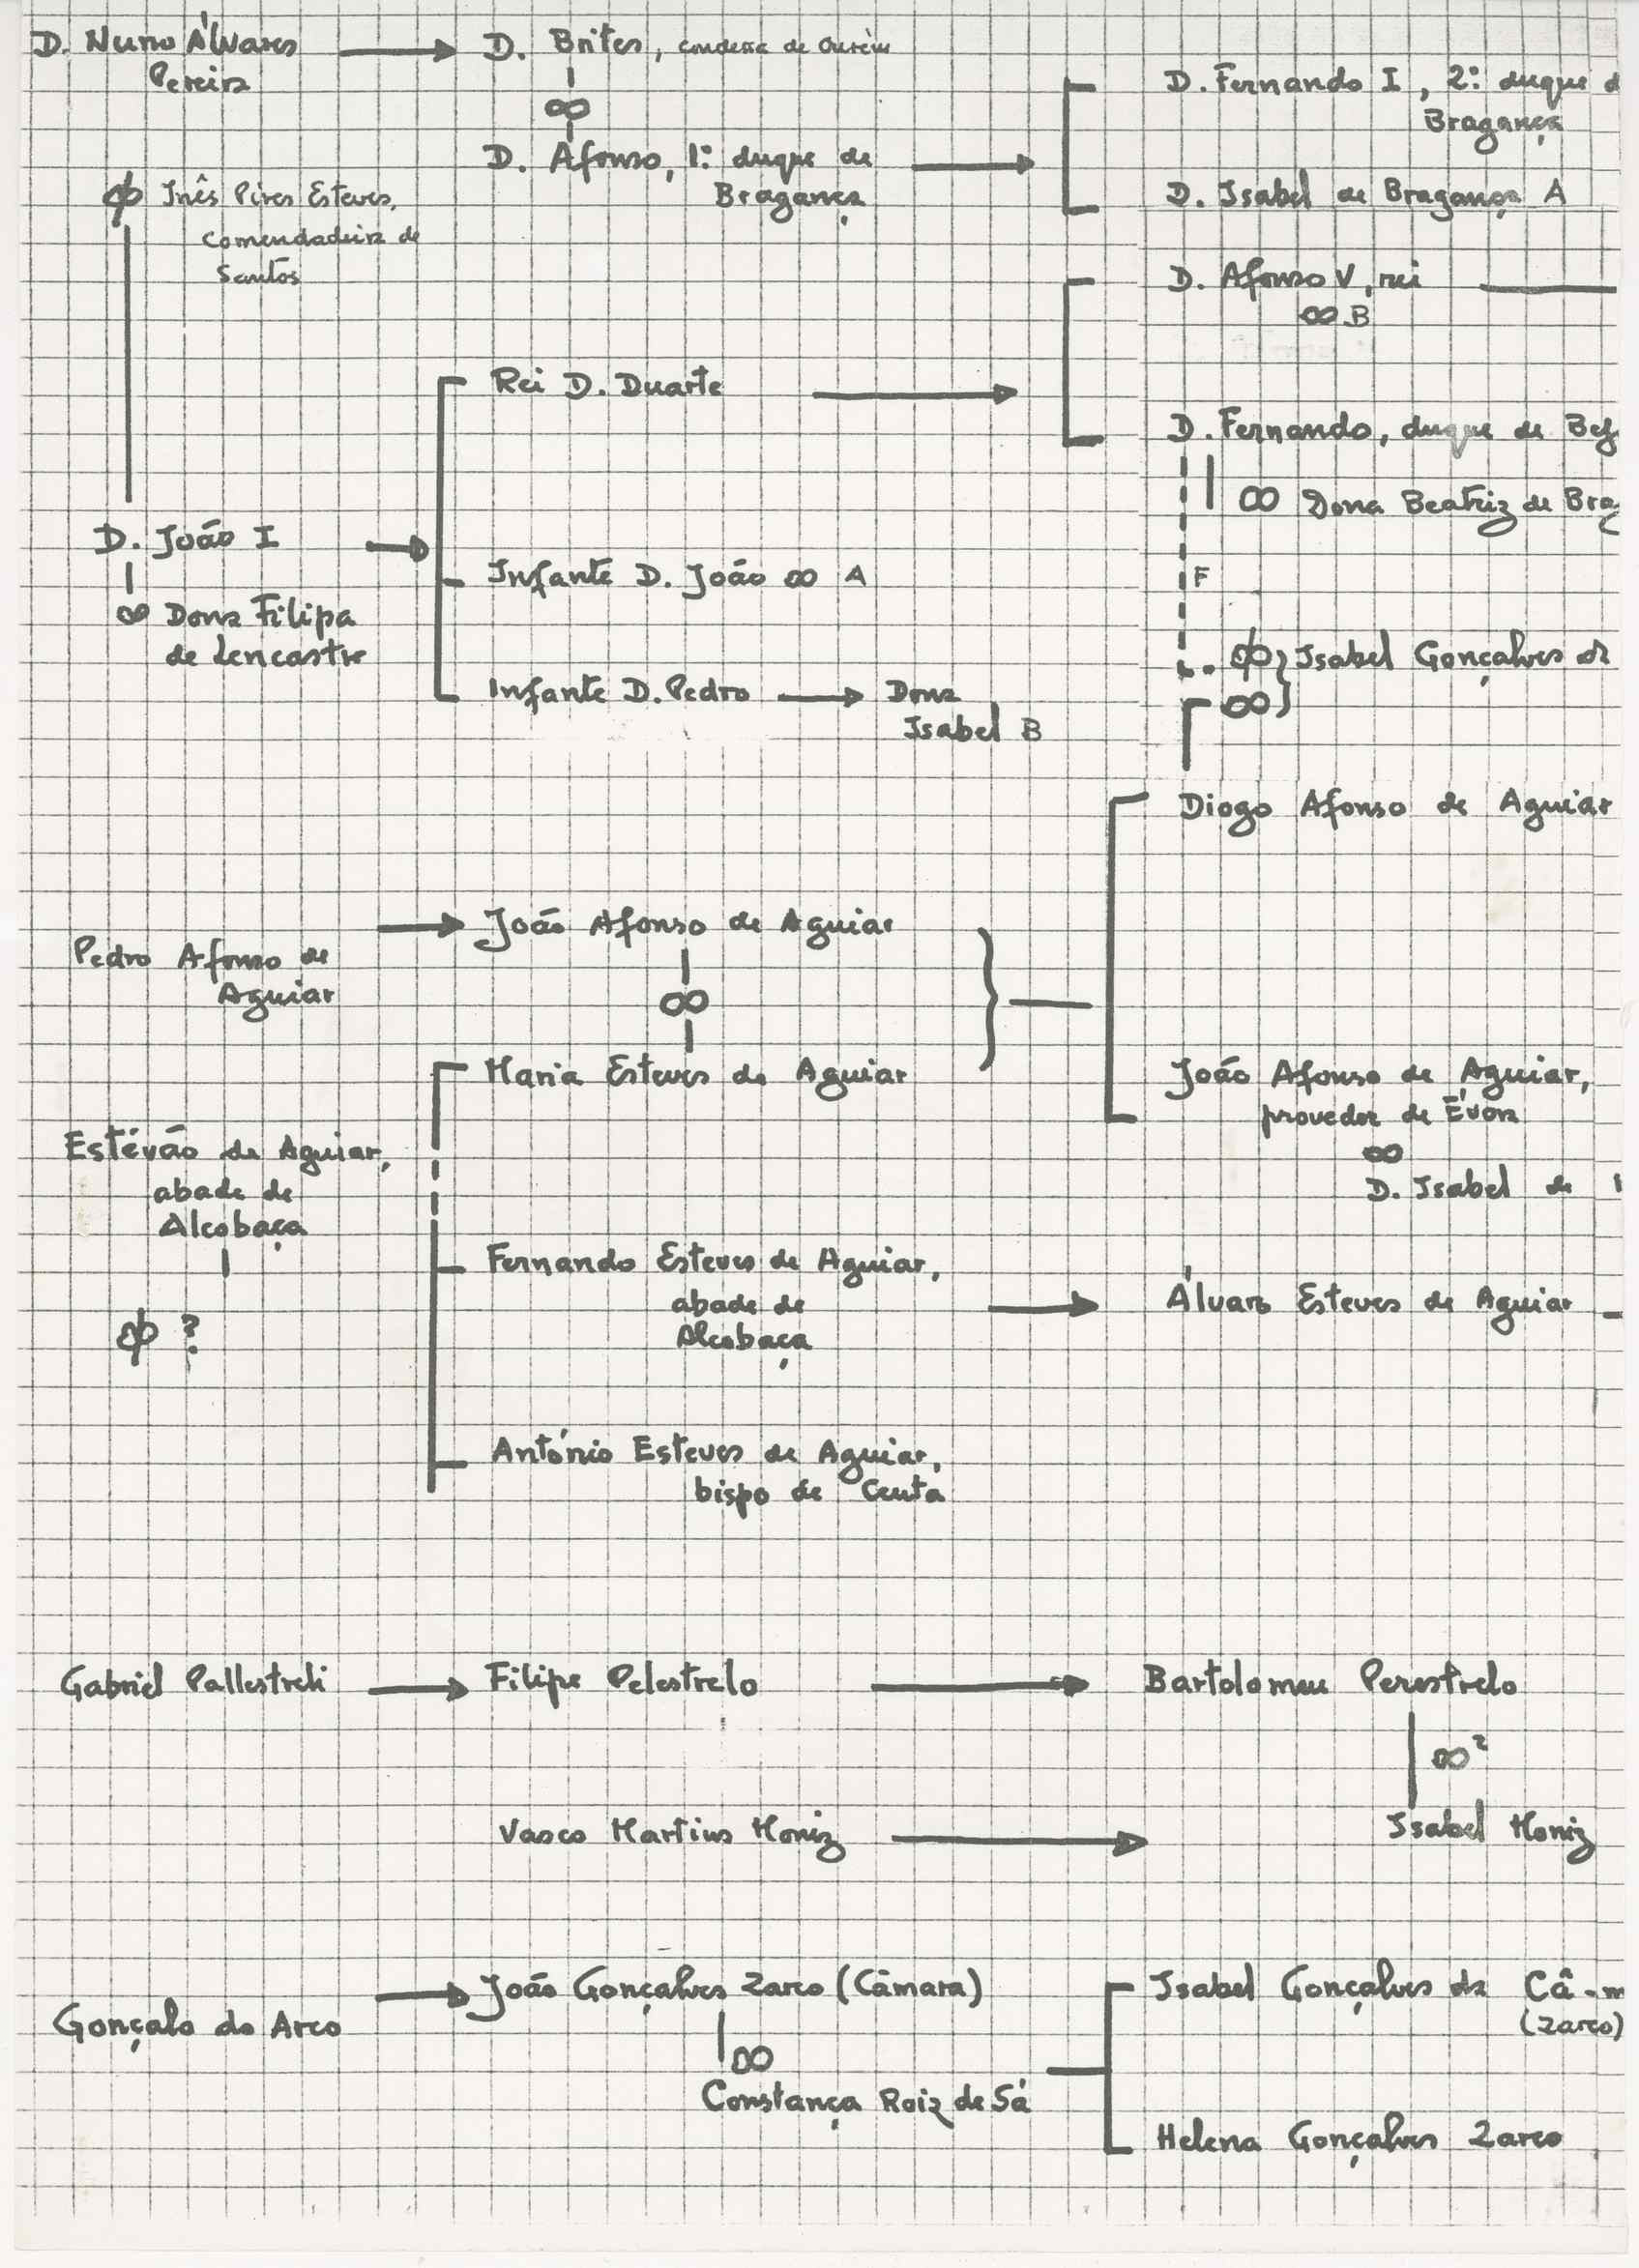 D. Nuno Álvares
Pereira
D. Brites, condessa de Ourém
∞
D. Afonso, 1.º duque de
Bragança
D. Fernando I, 2.º duque d
Bragança
D. Isabel de Bragança A
Inês Pires Esteves,
Comendadeira de
Santos
D. Afonso V, rei
∞ B
Rei D. Duarte
D. Fernando, duque de Bej
∞ Dona Beatriz de Brag
D. João I
∞ Dona Filipa
de Lencastre
Infante D. João ∞ A
F
Infante D. Pedro
Dona
Isabel B
Isabel Gonçalves d
∞
Diogo Afonso de Aguiar
Pedro Afonso de
Aguiar
João Afonso de Aguiar
∞
Maria Esteves de Aguiar
João Afonso de Aguiar,
provedor de Évora
∞
D. Isabel de
Estêvão de Aguiar,
abade de
Alcobaça
?
Fernando Esteves de Aguiar,
abade de
Alcobaça
Álvaro Esteves de Aguiar
António Esteves de Aguiar,
bispo de Ceuta
Gabriel Pallestreli
Filipe Pelestrelo
Bartolomeu Perestrelo
∞²
Vasco Martins Moniz
Isabel Moniz
Gonçalo do Arco
João Gonçalves Zarco (Câmara)
∞
Constança Roiz de Sá
Isabel Gonçalves da Câ-m
(Zarco)
Helena Gonçalves Zarco